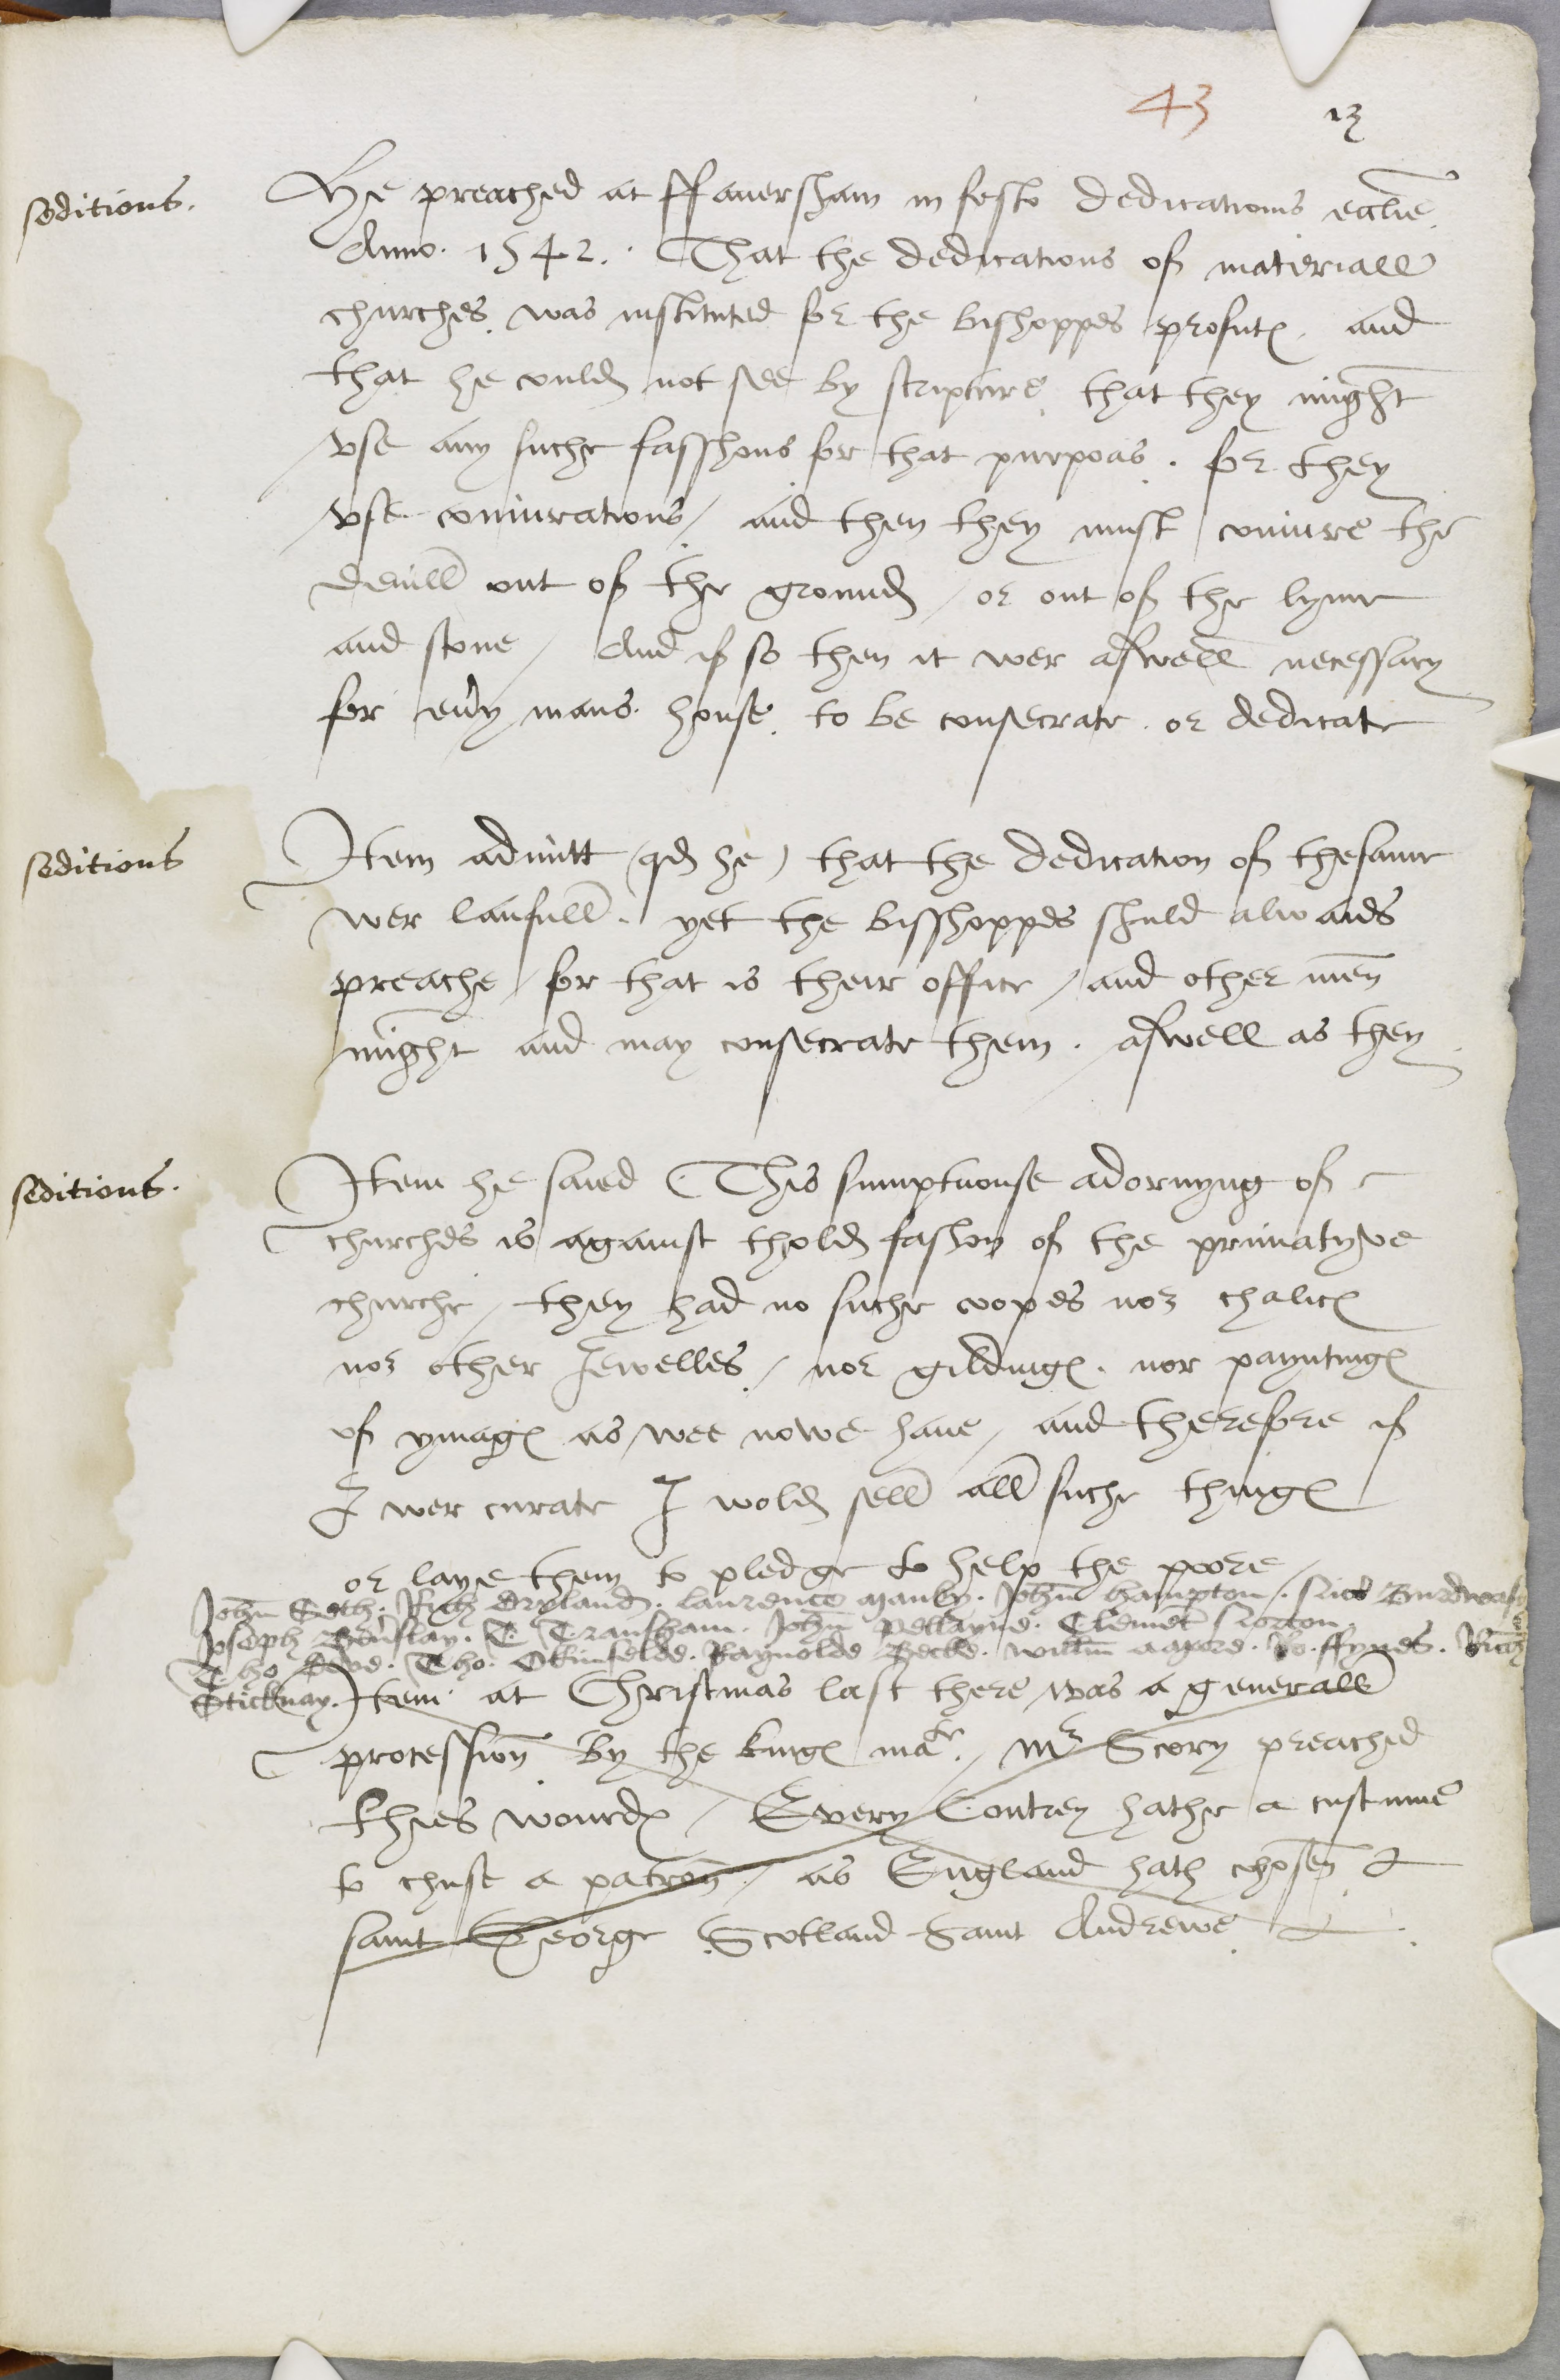 43 13
seditious. He preached at ffauersham in festo dedicationis ecclie
Anno. 1542. That the dedications of materiall
churches was instituted for the bishoppes profute, and
that he coulde not see by scripture that they might
vse any suche fasshons for that purpoas. for they
vse coniurations / and then they must coniure the
deuill out of the grounde / or out of the lyme
and stone / And if so then it wer aswell necessary
for eu'y mans house to be consecrate or dedicate
seditious Item admitt (qd he) that the dedication of thesame
wer laufull. yet the bisshoppes shuld alwaies
preache / for that is their office / and other men
might and may consecrate them. aswell as they
seditious. Item he saied This sumptuouse adornyng of
churches is against tholde fashon of the primatyve
churche / they had no suche copes nor chalices
nor other Jewelles / nor gildinges. nor payntinges
of ymages as wee nowe haue / and therefore if
I wer curate I wolde sell all suche thinges
or laye them to pledge to help the poore
John Seth. Rich Dryland. laurence Manby. John hampton. Nico
Joseph Beuslay. T. Transham. John Pellayne. Clement Norton
Tho Dove. Tho. Okinfelde. Raynolde Becke. Willm Agore. Jo. ffynes. Rich
Sticknay. Item at Christmas last there was a generall
procession By the kinges matie. / Mr Scory preached
thies wourdes / Every Contrey hathe a custume
to chuse a patron / as England hath chosen
saint George Scotland Saint Andrewe &